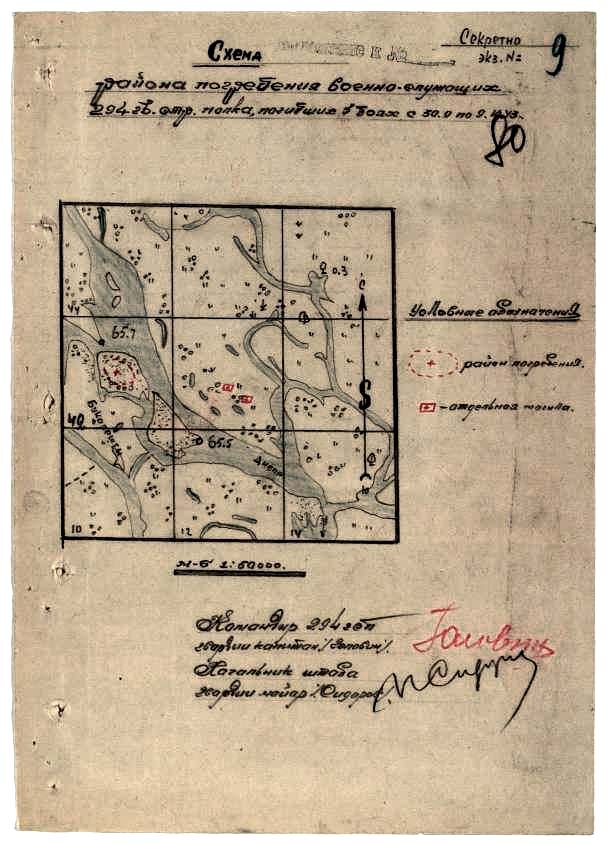 Секретно
Схема
экз. №
9
района погребения военно-служащих
294 гв. стр. полка, погибших в боях с 30.9 по 9.
80
0.3
с
44
65.7
Условные обозначения
район погребения.
- отдельная могила.
40
65.5
Днепр
ю
10
12
14
м-б 1:50000.
Командир 294 гсп
гвардии капитан
Начальник штаба
гвардии майор /Сидоров